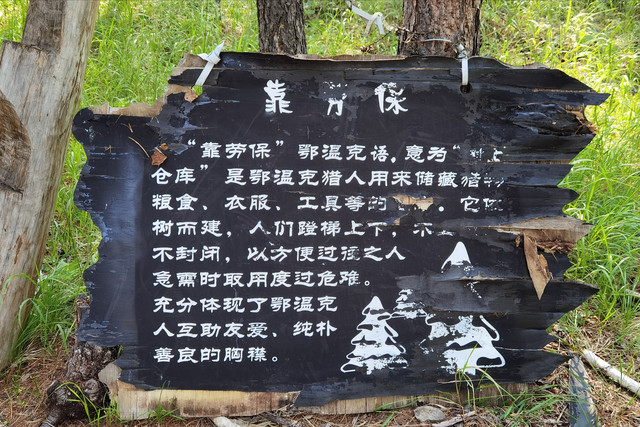 靠劳保
“靠劳保”鄂温克语，意为“
仓库”是鄂温克猎人用来储藏猎物
粮食、衣服、工具等的 。它依
树而建，人们蹬梯上下，
不封闭，以方便过往之人
急需时取用度过危难。
充分体现了鄂温克
人互助友爱、纯朴
善良的胸襟。